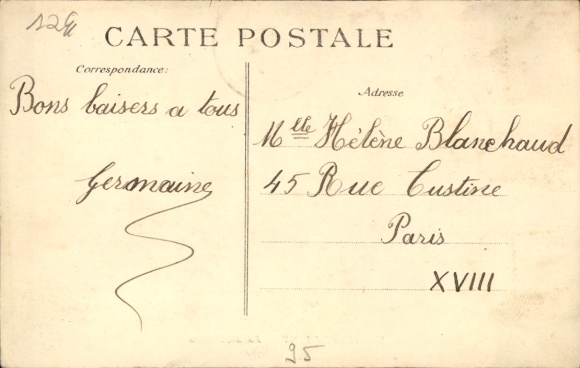 CARTE POSTALE
Correspondance:
Bons baisers a tous
Germaine
Adresse
Mlle Hélène Blanchaud
45 Rue Custine
Paris
XVIII
95